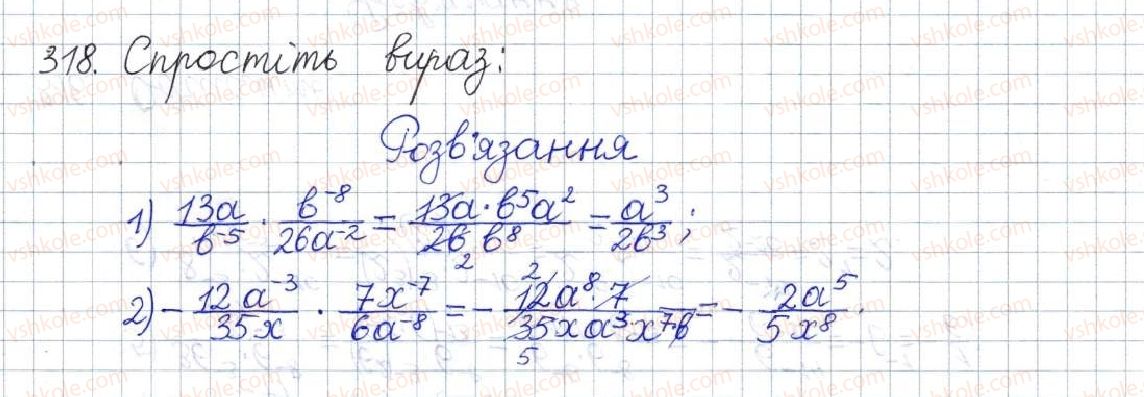 318. Спростіть вираз:
Розв'язання
1) 13a/b⁻⁵ · b⁻⁸/26a⁻² = 13a·b⁵a²/26 b⁸ 2 = a³/2b³ ;
2) - 12a⁻³/35x · 7x⁻⁷/6a⁻⁸ = - 2 12a⁸·7/35xa³·x⁷·6 5 = - 2a⁵/5x⁸ .